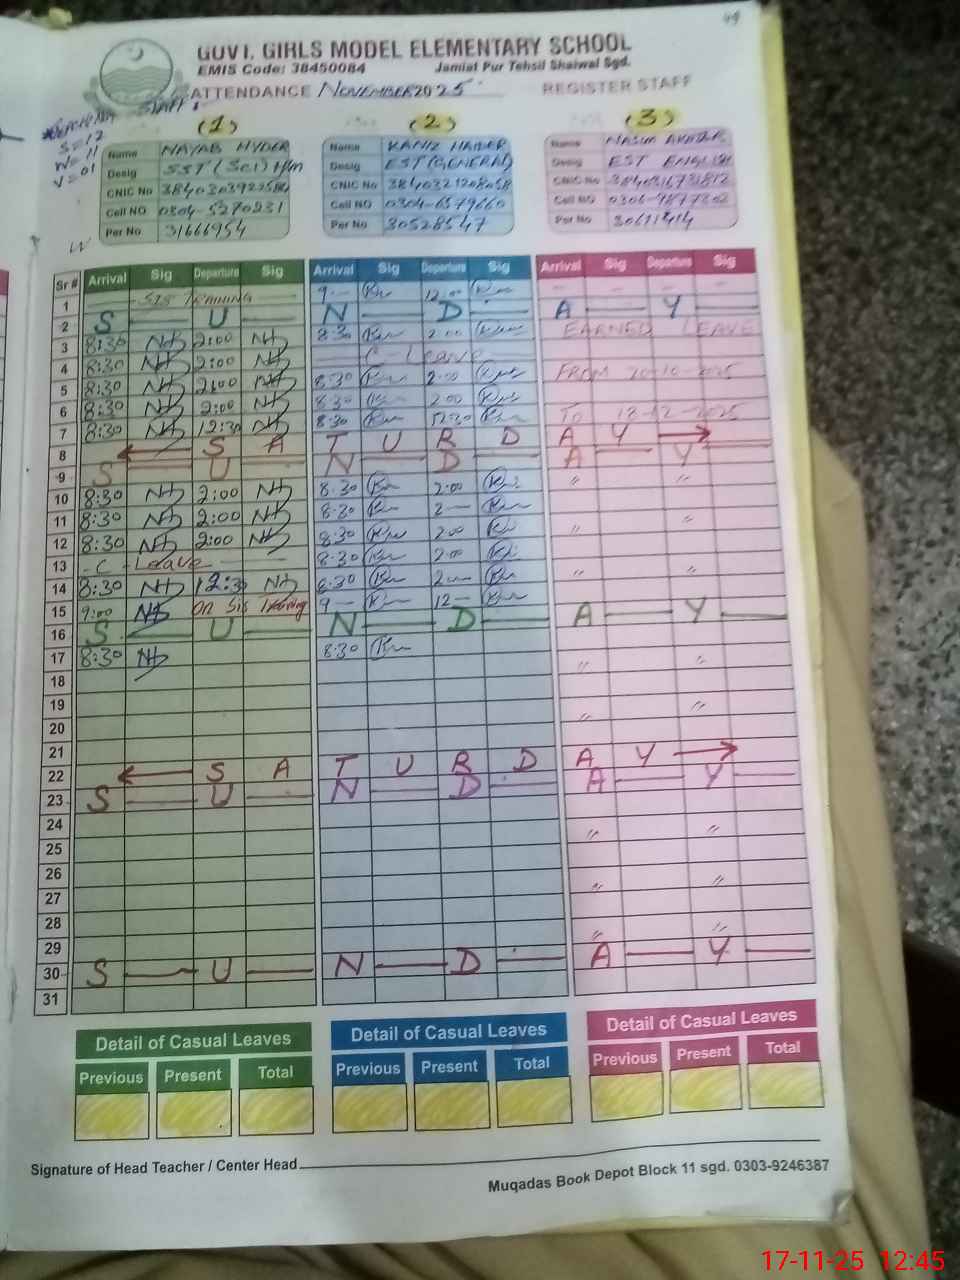 49
GOVT. GIRLS MODEL ELEMENTARY SCHOOL
EMIS Code: 38450084 Jamiat Pur Tehsil Shaiwal Sgd.
ATTENDANCE NOVEMBER 2025 REGISTER STAFF
STAFF:
S=12
W=11
V=01
(1) (2) (3)
Name NAYAB HYDER Name KANIZ HAIDER Name NASIM AKHTAR
Desig SST (Sci) H/m Desig EST (GENERAL) Desig EST ENGLISH
CNIC No CNIC No CNIC No
Cell NO 0304-5270231 Cell NO 0304-6579660 Cell NO
Per No 31666954 Per No 30528547 Per No 30611414
W
Sr # Arrival Sig Departure Sig Arrival Sig Departure Sig Arrival Sig Departure Sig
1 SIS Training 9 — 12:00
2 S U N D A Y
3 8:30 NH 2:00 NH 8:30 2:00 EARNED LEAVE
4 8:30 NH 2:00 NH C - Leave
5 8:30 NH 2:00 NH 8:30 2:00 FROM 20-10-2025
6 8:30 NH 2:00 NH 8:30 2:00
7 8:30 NH 12:30 NH 8:30 12:30 TO 18-12-2025
8 ← S A T U R D A Y →
9 S U N D A Y
10 8:30 NH 2:00 NH 8:30 2:00 〃 〃
11 8:30 NH 2:00 NH 8:30 2 —
12 8:30 NH 2:00 NH 8:30 2:00 〃 〃
13 - C - Leave 8:30 2:00
14 8:30 NH 12:30 NH 8:30 2 — 〃 〃
15 9:00 NH On SIS Training 9 — 12 —
16 S U N D A Y
17 8:30 NH 8:30
18 〃 〃
19
20 〃 〃
21
22 ← S A T U R D A Y →
23 S U N D A Y
24
25 〃 〃
26
27 〃 〃
28
29 〃 〃
30 S U N D A Y
31
Detail of Casual Leaves Detail of Casual Leaves Detail of Casual Leaves
Previous Present Total Previous Present Total Previous Present Total
Signature of Head Teacher / Center Head
Muqadas Book Depot Block 11 sgd. 0303-9246387
17-11-25 12:45